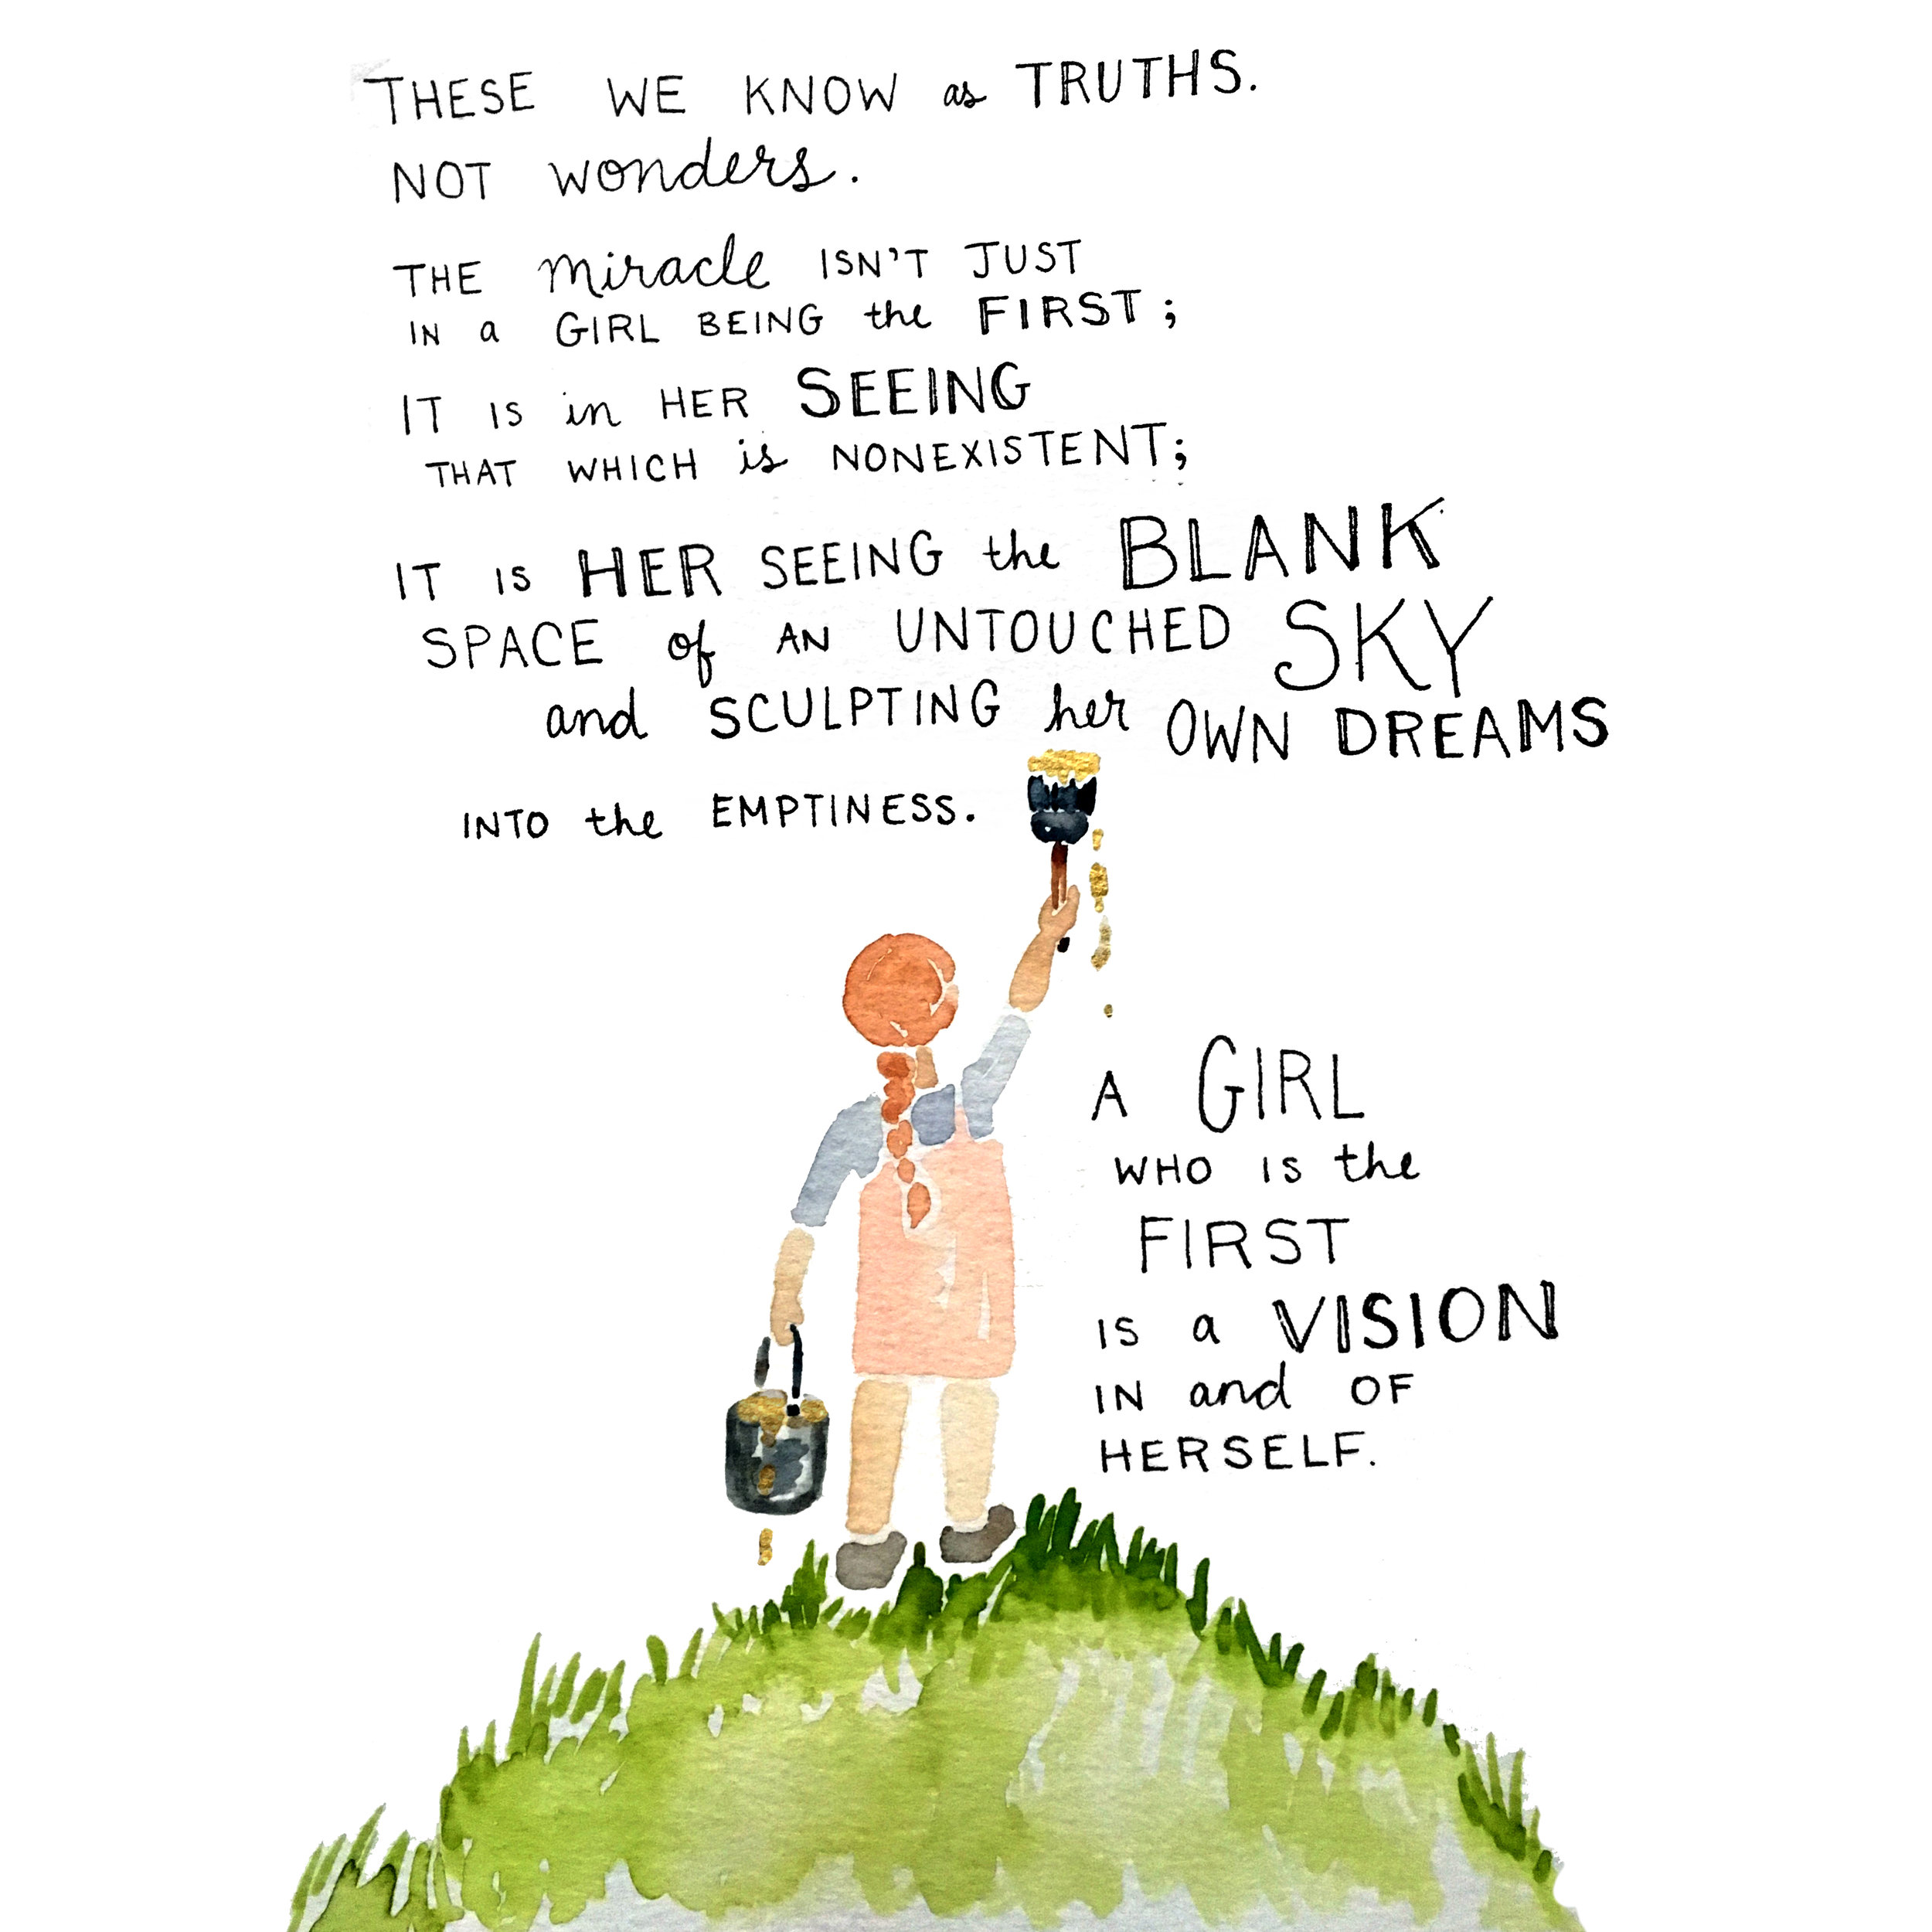 THESE WE KNOW as TRUTHS.
NOT wonders.
THE miracle ISN'T JUST
IN a GIRL BEING the FIRST;
IT IS in HER SEEING
THAT WHICH is NONEXISTENT;
IT IS HER SEEING the BLANK
SPACE of AN UNTOUCHED SKY
and SCULPTING her OWN DREAMS
INTO the EMPTINESS.
A GIRL
WHO IS the
FIRST
IS a VISION
IN and OF
HERSELF.